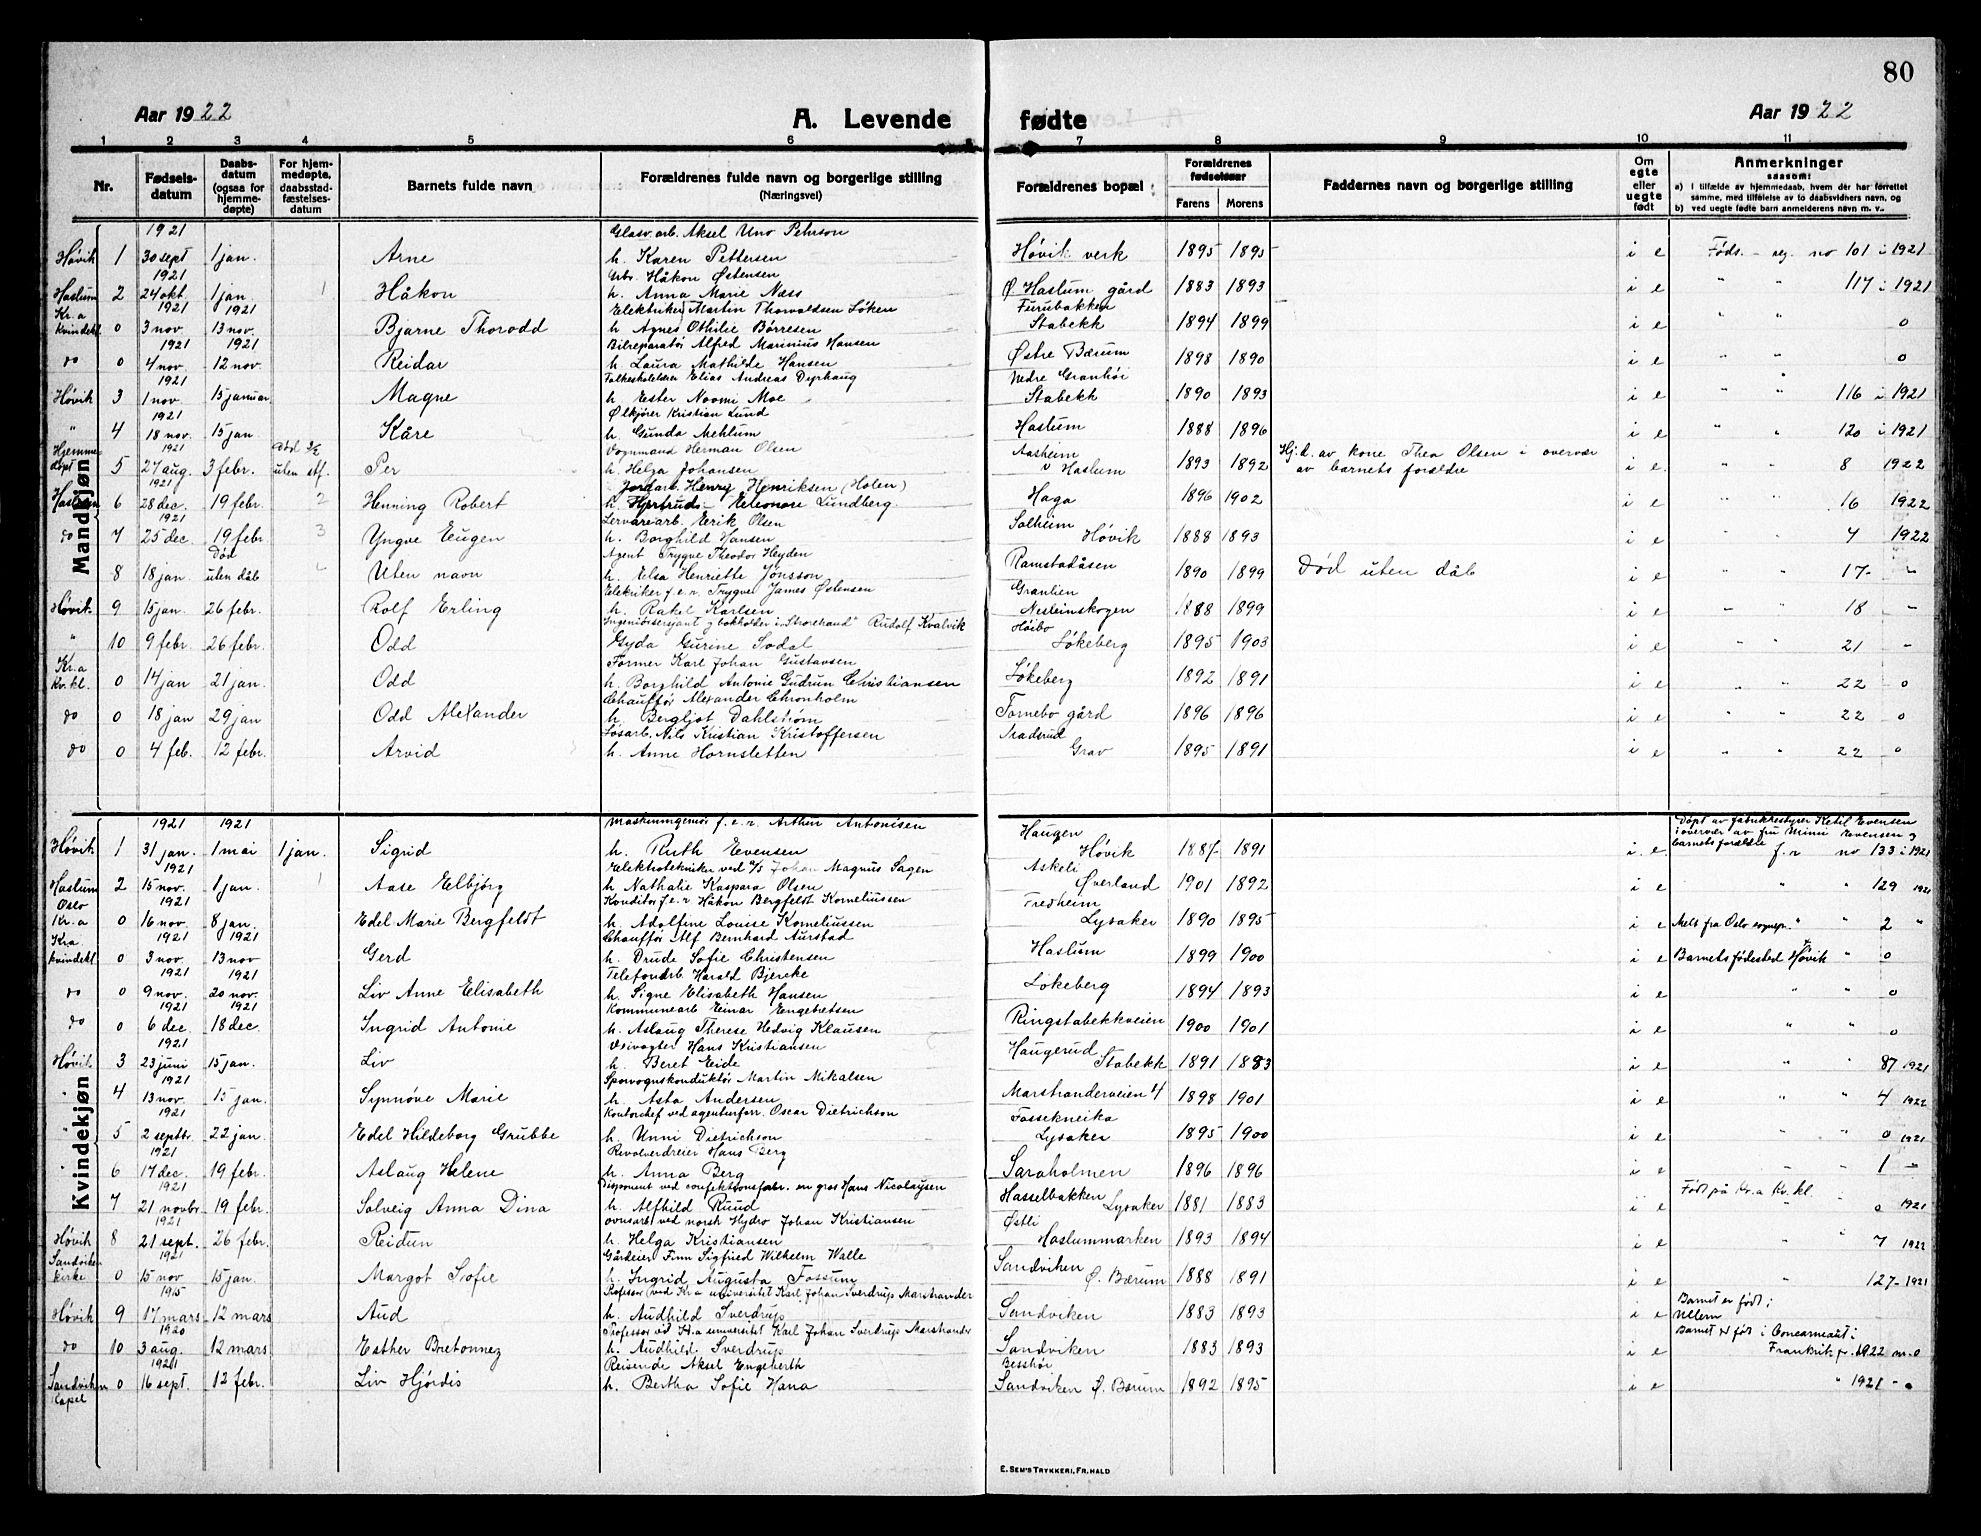 80
Aar 1922 A. Levende fødte Aar 1922
1 2 3 4 5 6 7 8 9 10 11
Nr. Fødselsdatum Daabsdatum (ogsaa for hjemmedøpte) For hjemmedøpte, daabsstadfæstelsesdatum Barnets fulde navn Forældrenes fulde navn og borgerlige stilling (Næringsvei) Forældrenes bopæl Forældrenes fødselsaar Farens Morens Faddernes navn og borgerlige stilling Om egte eller uegte født Anmerkninger saasom:
a) i tilfælde av hjemmedaab, hvem der har forrettet samme, med tilføielse av to daabsvidners navn, og
b) ved uegte fødte barn anmelderens navn m. v.
Mandkjøn
1921 Glasv.arb. Aksel Uno Pehrson
Høvik 1 30 sept 1 jan. Arne h. Karen Pettersen Høvik verk 1895 1895 i e Føds.-reg. no 101 i 1921
1921 Håkon Østensen
Haslum 2 24 okt. 1 jan 1 Håkon h. Anna Marie Næss Ø. Haslum gård 1883 1893 i e " " 117 i 1921
Kr.a 1921 1921 Elektriker Martin Thorvaldsen Løken Furubakken
Kvindekl 0 3 nov. 13 nov. Bjarne Thorodd h. Agnes Othilie Børresen Stabekk 1894 1899 i e " " 0
1921 1921 Bilreparatør Alfred Marinius Hansen
do 0 4 nov. 12 nov. Reidar h. Laura Mathilde Hansen Østre Bærum 1898 1890 i e " " 0
1921 Elias Andreas Dyrhaug Nedre Granhøi
Høvik 3 1 nov. 15 januar Magne h. Ester Noomi Moe Stabekk 1890 1893 i e " " 116 i 1921
1921 Ølkjører Kristian Lund
" 4 18 nov. 15 jan Kåre h. Gunda Mehlum Haslum 1888 1896 i e " " 120 i 1921
Hjemmedøpt 1921 død Vognmand Herman Olsen Aasheim
5 27 aug. 3 febr. uten stf. Per h. Helga Johansen v Haslum 1893 1892 Hj.d. av kone Thea Olsen i overvær av barnets forældre i e " " 8 1922
1921 Jordarb. Henry Henriksen (Holen)
Haslum 6 28 dec. 19 febr. 2 Henning Robert h. Hjertruds- Eleonore Lundberg. Haga 1896 1902 i e " " 16 1922
1921 Lervarearb. Eerik Olsen Solheim
do 7 25 dec. 19 febr 3 Yngve Eugen h. Borghild Hansen Høvik 1888 1893 i e " " 4 1922
Død Agent Trygve Theodor Heyden
8 18 jan uten dåb Uten navn h. Elsa Henriette Jonsson Ramstadåsen 1890 1899 Død uten dåb i e 17- "
Elektriker f.e.r. Trygve James Østensen Granlien
Høvik 9 15 jan. 26 febr. Rolf Erling h. Rakel Karlsen Nesteinskogen 1888 1899 i e " " 18 "
Ingeniørsersjant g bokholder i "Storebrand" Rudolf Kvalvik Høibo
" 10 9 febr 26 febr. Odd Gyda Gurine Sodal Løkeberg 1895 1903 i e " " 21 "
Kr.a Former Karl Johan Gustavsen
Kv.kl. 0 14 jan 21 jan. Odd h. Borghild Antonie Gudrun Christiansen Løkeberg 1892 1891 i e " " 22 0
Chauffør Alexander Chronholm
do 0 18 jan 29 jan Odd Alexander h. Bergljot Dahlstrøm Fornebo gård 1896 1896 i e " " 22 0
Løsarb. Nils Kristian Kristoffersen
do 0 4 feb. 12 febr. Arvid h. Anne Hornsletten Grav 1895 1891 i e " " 22 0
Kvindekjøn
1921 1921 Maskiningeniør f.e.r. Arthur Antonisen Haugen Døpt av fabrikkestyrer Ketil Evensen i overvær av fru Mimi Evensen g barnets forældre
Høvik 1 31 jan. 1 mai 1 jan. Sigrid h. Ruth Evensen Høvik 1887 1891 i e f.r no 133 i 1921
1921 Elektrotekniker ved Johan Magnus Sagen Askeli
Haslum 2 15 nov. 1 jan. 1 Aase Elbjørg h Nathalie Kaspara Olsen Øverland 1901 1892 i e " " 129 1921
Oslo 1921 Konditor f.e.r. Håkon Bergfeldt Korneliussen Fredheim
Kr.a 0 16 nov. 8 jan. Edel Marie Bergfeldt h. Adolfine Louise Korneliussen Lysaker 1890 1895 i e Meld fra Oslo sognep." " 2 "
Kra. 1921 1921 Chauffør Alf Bernhard Aurstad
kvindekl 0 3 nov 13 nov Gerd h. Drude Sofie Christensen Haslum 1899 1900 i e Barnets fødested Høvik " 0
1921 1921 Telefonarb. Harald Bjercke
do 0 9 nov. 20 nov. Liv Anne Elisabeth h. Signe Elisabeth Hansen Løkeberg 1894 1893 i e " " 0
1921 1921 Kommunearb Einar Engebretsen
do 0 6 dec 18 dec. Ingrid Antonie h. Aslaug Therese Hedvig Klausen Ringstabekkveien 1900 1901 i e " " 0
1921 Veivogter Hans Kristiansen Haugerud.
Høvik 3 23 juni 15 jan. Liv h. Beret Eide Stabekk 1891 1883 i e " " 87 1921
1921 Sporvognskonduktør Martin Mikalsen
" 4 13 nov. 15 jan. Synnøve Marie h. Asta Andersen Marstranderveien 4 1898 1901 i e " " 4 1922
1921 Kontorchef ved agenturforr. Oscar Dietrichson Fossekneika
" 5 2 septbr. 22 jan. Edel Hildeborg Grubbe h. Unni Dietrichson Lysaker 1895 1900 i e " " 0 1921
1921 Revolverdreier Hans Berg
" 6 17 dec. 19 febr. Aslaug Helene h. Anna Berg Saraholmen 1896 1896 i e " " 1 "
1921 Disponent ved confektionsfabr. en gros Hans Nicolaysen Hasselbakken Født på Kr.a Kv.kl.
7 21 novbr 19 febr. Solveig Anna Dina h. Alfhild Ruud Lysaker 1881 1883 i e " 0 1921
1921 ovnsarb ved norsk Hydro Johan Kristiansen Østli
Høvik 8 21 sept. 26 febr. Reidun h. Helga Kristiansen Haslummarken 1893 1894 i e " " 7 1922
Sandviken 1921 Gårdeier Finn Sigfried Wilhelm Walle Sandviken
kirke 0 15 nov 15 jan. Margot Sofie h. Ingrid Augusta Fossum Ø. Bærum 1888 1891 i e " " 127- 1921
1915 Professor ved Kr.a universitet Karl Johan Sverdrup Marstrander Barnet er født i
Høvik 9 17 mars 12 mars Aud h. Audhild Sverdrup Sandviken 1883 1893 i e Ullern
1920 Professor vd Kr.a universitet Karl Johan Sverdrup Marstrander Barnet er født i Concarneaut i
do 10 3 aug. 12 mars Esther Bretonnez h. Audhild Sverdrup Sandviken 1883 1893 i e Frankrik. 1922 0
1921 Reisende Aksel Engeberth Besshøi
Sandviken Capel 0 16 sept. 12 febr. Liv Hjördis h. Bertha Sofie Hana Sandviken Ø. Bærum 1892 1895 i e " 1921 - 0
E. SEM'S TRYKKERI, FR.HALD